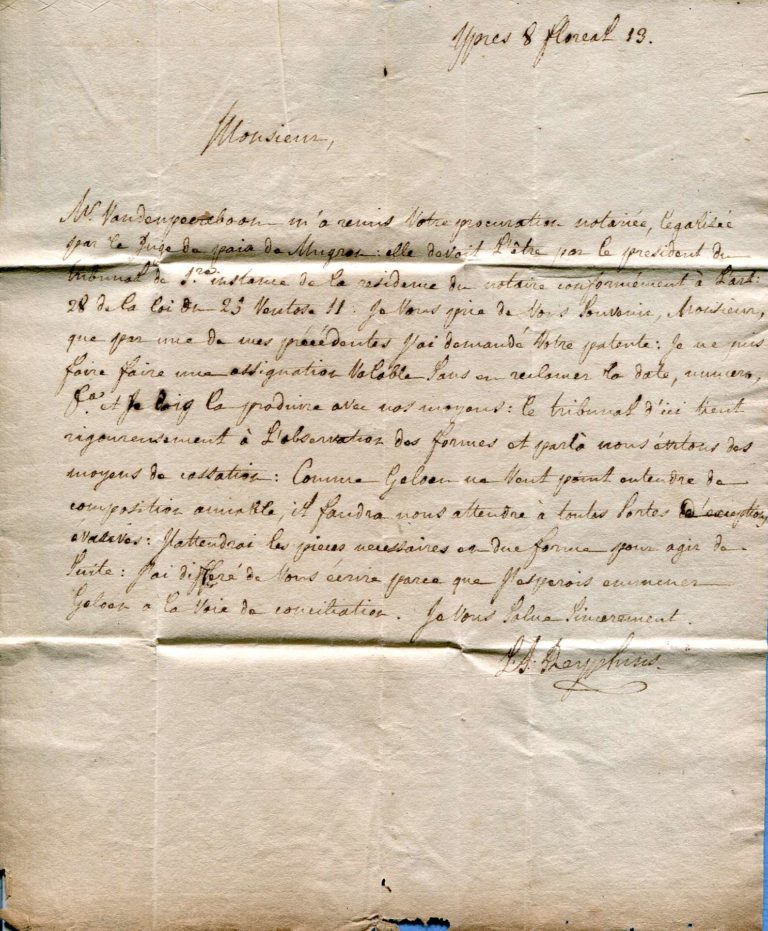 Ypres 8 floreal 13.
Monsieur,
Mr. Vandenpeereboom m'a remis Votre procuration notariée, légalisée
par le Juge de paia de Mugron : elle devoit L'être par le president du
tribunal de 1.re instance de la residence du notaire conformément à L'art:
28 de la loi du 25 Ventose 11 : Je Vous prie de Vous Souvenir, Monsieur,
que par une de mes précédentes J'ai demandé Votre patente : Je ne puis
faire faire une assignation Valable Sans en reclamer la date, numero,
&a. et la produire avec nos moyens : le tribunal d'ici tient
rigoureusement à L'observation des formes et parla nous évitons des
moyens de cassation : Comme Geloen ne Veut point entendre de
composition amiable, il faudra nous attendre à toutes Sortes d'exceptions
évasives : J'attendrai les pieces necessaires en due forme pour agir de
Suite : J'ai differé de Vous écrire parce que J'esperois emmener
Geloen a la Voie de conciliation. Je Vous Salue Sincerement.
Beyphins.